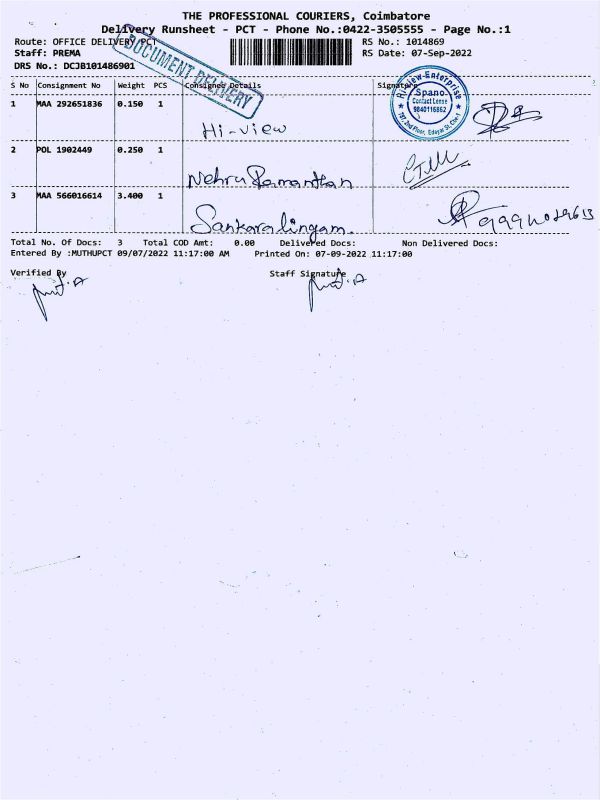 THE PROFESSIONAL COURIERS, Coimbatore
Delivery Runsheet - PCT - Phone No.:0422-3505555 - Page No.:1
Route: OFFICE DELIVERY PCT
RS No.: 1014869
Staff: PREMA
RS Date: 07-Sep-2022
DRS No.: DCJB101486901
DOCUMENT DELIVERY
S No Consignment No Weight PCS Consignee Details Signature
1 MAA 292651836 0.150 1 Hi-view
Hi-view Enterprise
Spano
Contact Lense
9840116862
2 POL 1902449 0.250 1 Nehru Ramanthan
3 MAA 566016614 3.400 1 Sankaralingam.
Total No. Of Docs: 3 Total COD Amt: 0.00 Delivered Docs: Non Delivered Docs:
Entered By :MUTHUPCT 09/07/2022 11:17:00 AM Printed On: 07-09-2022 11:17:00
Verified By Staff Signature